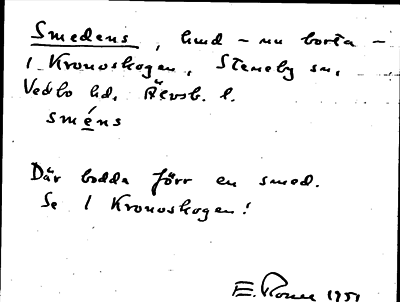 Smedens, lund – nu borta –
i Kronoskogen, Steneby sn,
Vedbo hd, Älvsb. l.
sméns
Där bodde förr en smed.
Se i Kronoskogen!
E. 1951